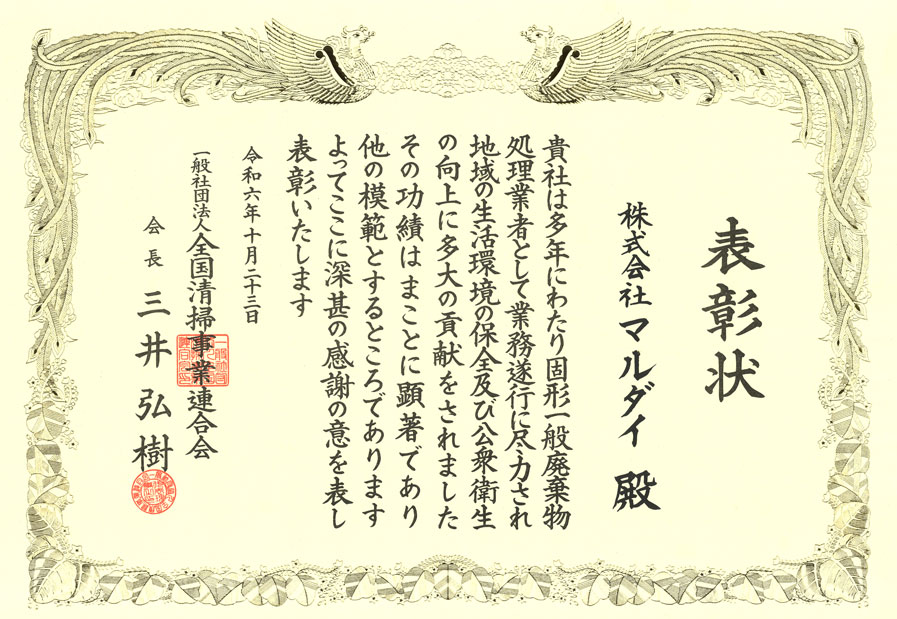 表彰状
株式会社 マルダイ 殿
貴社は多年にわたり固形一般廃棄物
処理業者として業務遂行に尽力され
地域の生活環境の保全及び公衆衛生
の向上に多大の貢献をされました
その功績はまことに顕著であり
他の模範とするところであります
よってここに深甚の感謝の意を表し
表彰いたします
令和六年十月二十三日
一般社団法人 全国清掃事業連合会
会長 三井弘樹